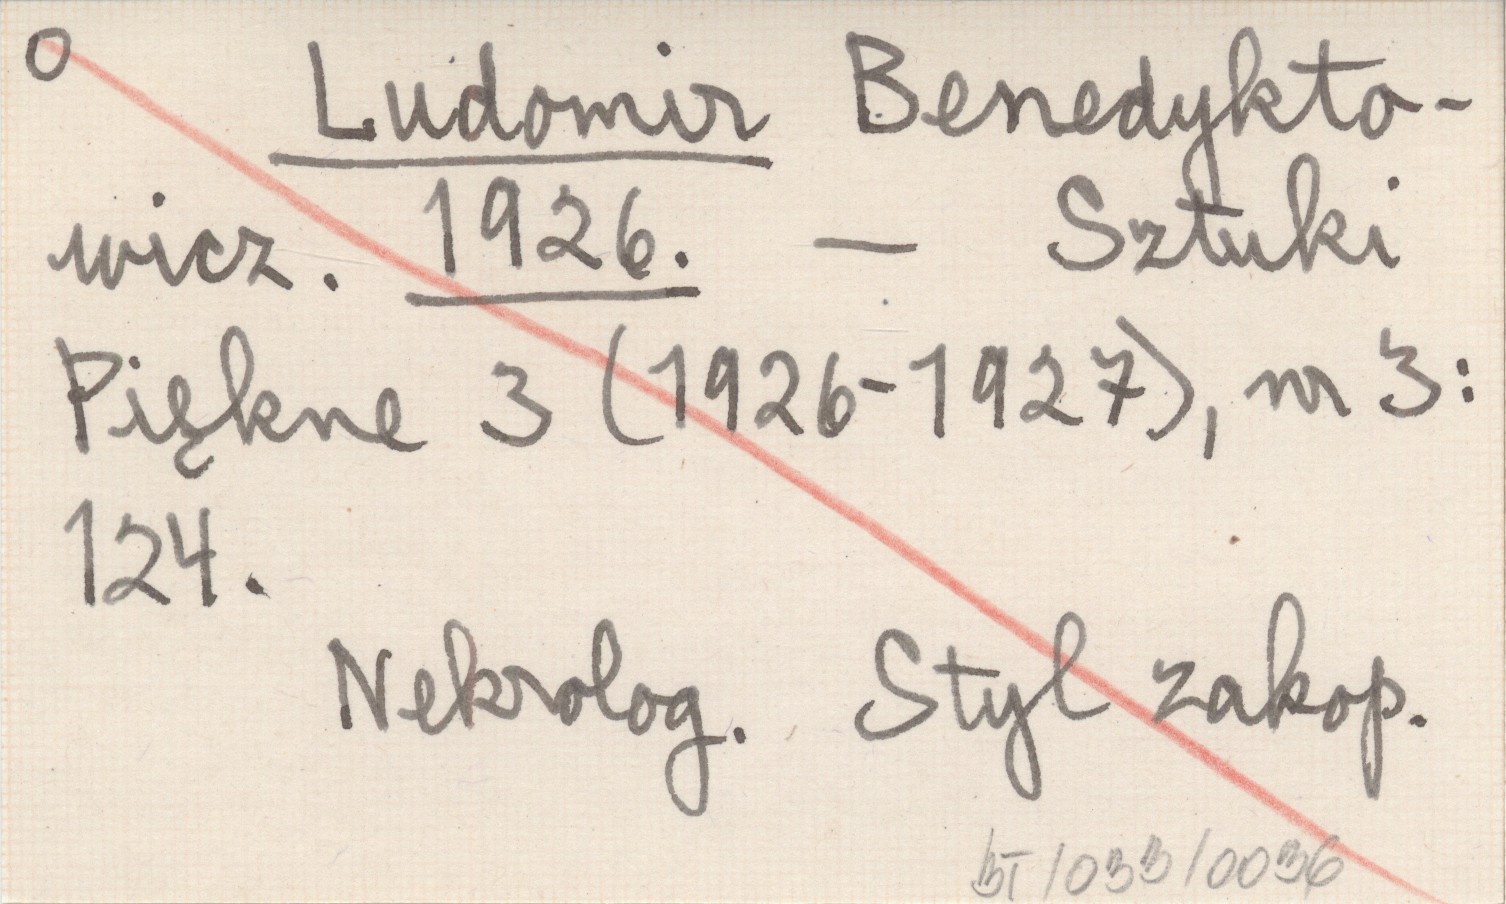 O Ludomir Benedykto-
wicz. 1926. — Sztuki
Piękne 3 (1926-1927), nr 3:
124.
Nekrolog. Styl zakop.
BT/033/0036